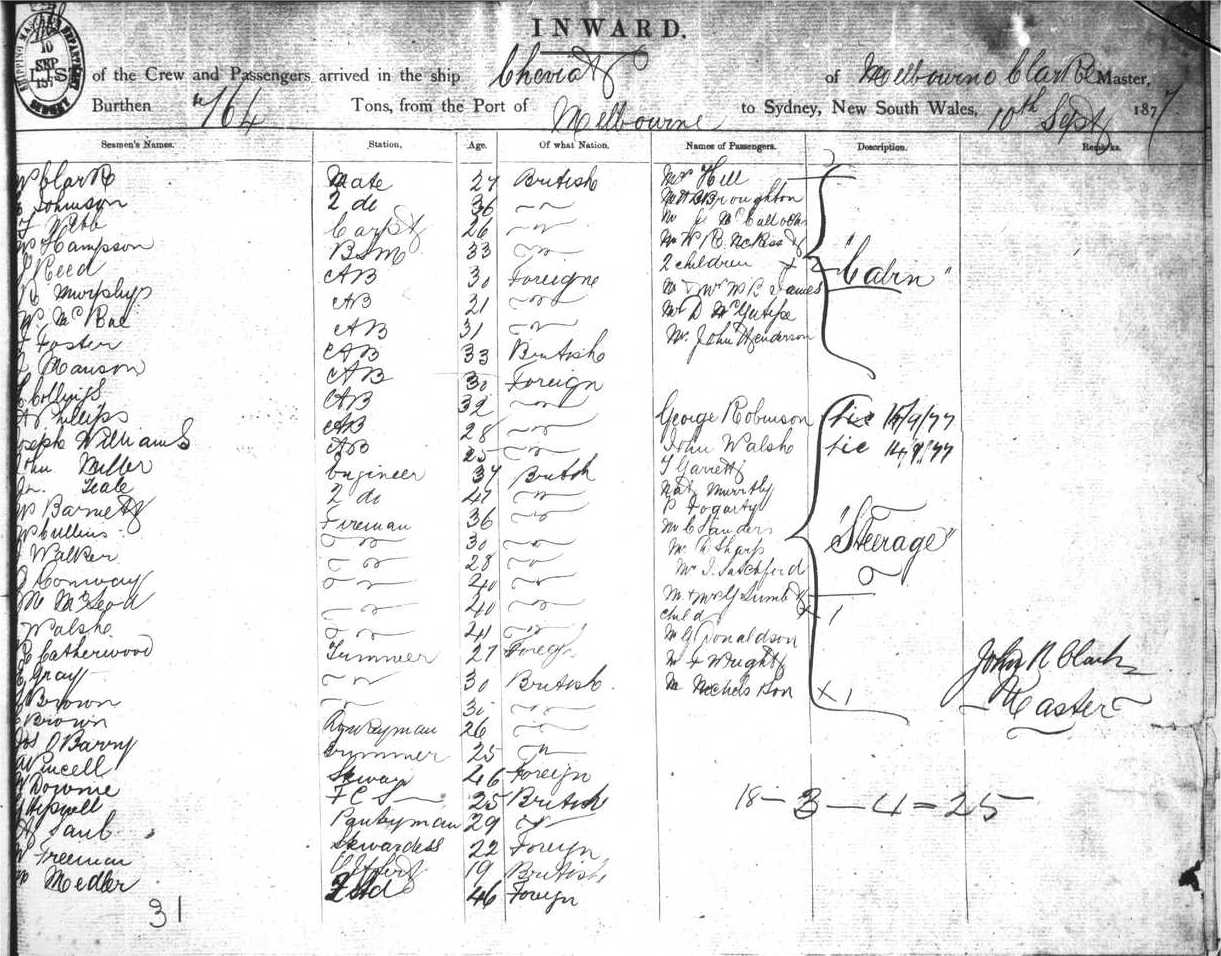 INWARD.
SHIPPING MASTER'S DEPARTMENT
10
SEP
187
SYDNEY
LIST of the Crew and Passengers arrived in the ship Cheviot of Melbourne Clark Master,
Burthen 764 Tons, from the Port of Melbourne to Sydney, New South Wales, 10th Sept 1877
Seamen's Names. Station. Age. Of what Nation. Names of Passengers. Description. Remarks.
Clark Mate 27 British Mr Hill
Johnson 2 do 36 Broughton
Webb Carpt 26
Hampson BSM 33 Mr W R
Reed AB 30 Foreigne 2 children
R Murphy AB 31 James
W. McRae AB 31 Mr D
Foster AB 33 British Mr. John Henderson
Manson AB 30 Foreign
"Cabin"
Collings AB 32
Phillips AB 28 George Robinson tic 14/9/77
Joseph Williams AB 25 John Walshe tic 14/9/77
John Miller Engineer 37 British T Garrett
Teale 2 do 47 Nat
Barnett Fireman 36 P Fogarty
Cullins 30 Sanders
Walker 28 Sharp
Conway 40
McLeod 40
"Steerage"
child x 1
Walshe 41 Donaldson
Catherwood Trimmer 27 Foreign Wright
Gray 30 British x 1
Brown 30
Brown 26
Jos O Barry Trimmer 25
Pincell 46 Foreign
Downie F C S 25 British
Hipwell Pantryman 29
Saul Stewardess 22 Foreign
Freeman 19 British
Medler 46 Foreign
John R Clark
Master
18 - 3 - 4 = 25
31